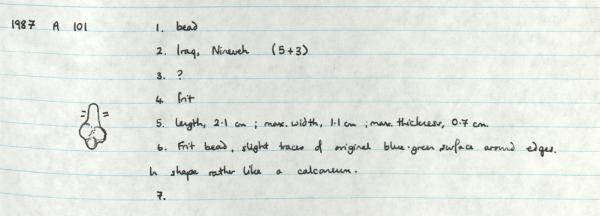 1987 A 101 1. bead
2. Iraq, Nineveh (5+3)
3. ?
4. frit
5. length, 2.1 cm ; max. width, 1.1 cm ; max. thickness, 0.7 cm.
6. Frit bead, slight traces of original blue-green surface around edges.
In shape rather like a calcaneum.
7.